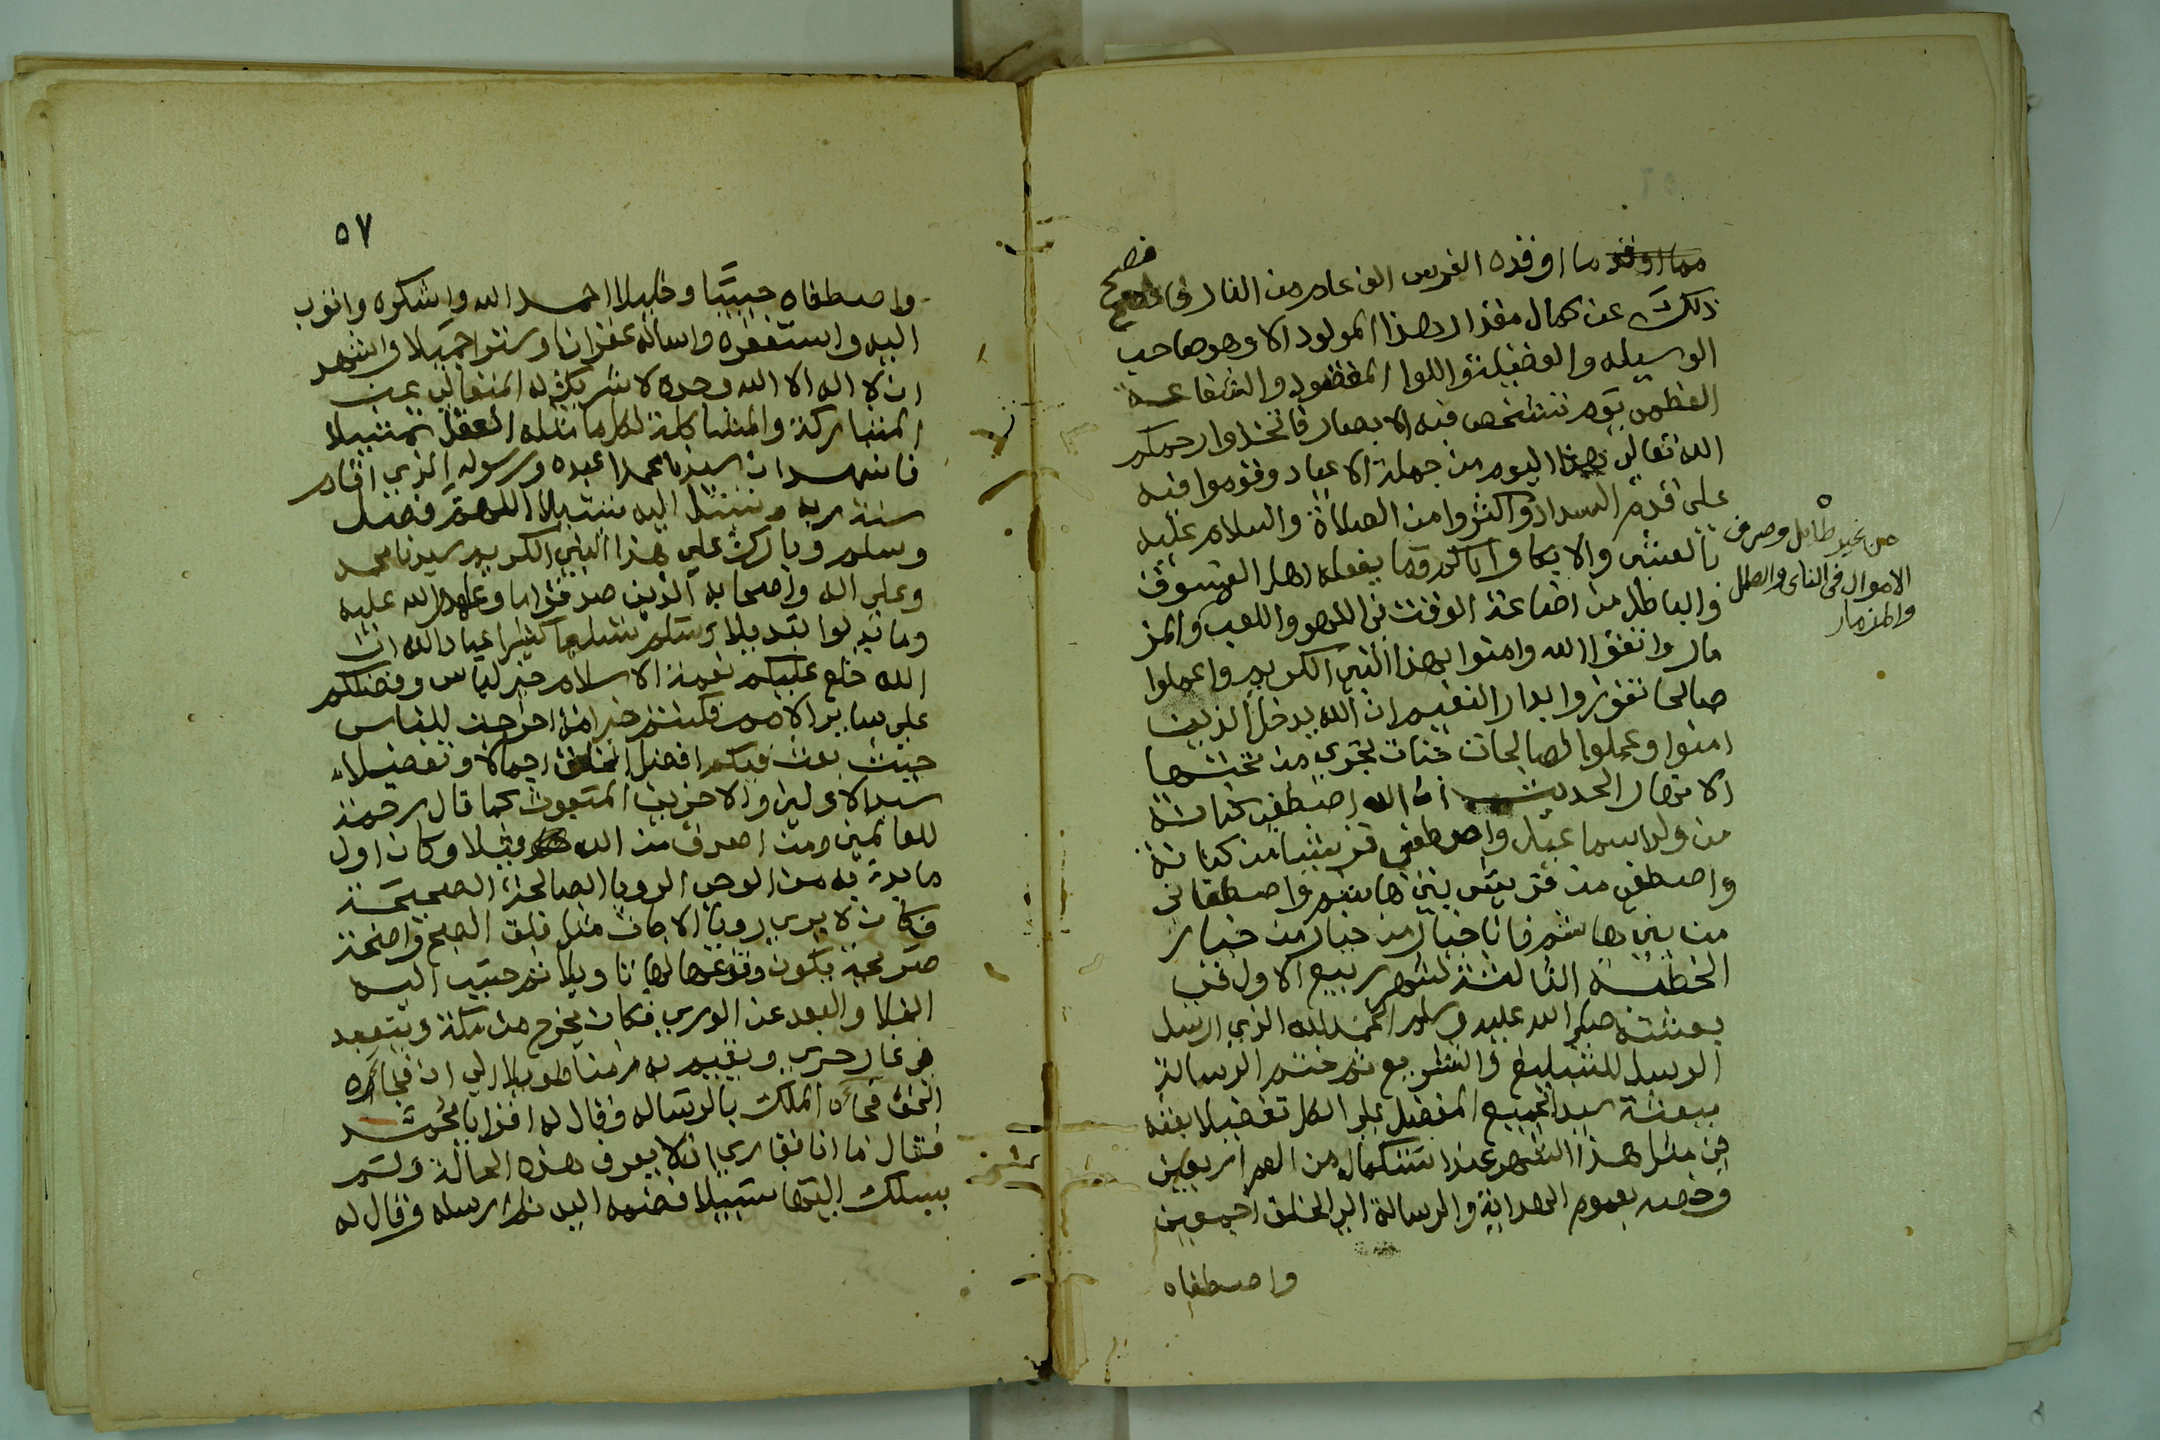 ما اوقده الفرس الف عام من النار فافصح
ذلك عن كمال مقدار هذا المولود الا وهو صاحب
الوسيله والفضيلة واللوا المعقود والشفاعة
العظمى يوم تشخص فيه الابصار فاتخذوا رحمكم
الله تعالى هذا اليوم من جملة الاعياد وقوموا فيه
على قدم السداد واكثروا من الصلاة والسلام عليه
بالعشى والابكار واياكم وما يفعله اهل الفسوق
والباطل من اضاعة الوقت فى اللهو واللعب والمز
مار واتقوا الله وامنوا بهذا النبى الكريم واعملوا
صالحا تفوزوا بدار النعيم ان الله يدخل الذين
امنوا وعملوا الصالحات جنات تجري من تحتها
الانهار الحديث ان الله اصطفى كنانة
من ولد اسماعيل واصطفى قريشا من كنانة
واصطفى من قريش بنى هاشم واصطفانى
من بنى هاشم فانا خيار من خيار من خيار
الخطبة الثالثة لشهر ربيع الاول فى
بعثته صلى الله عليه وسلم الحمد لله الذي ارسل
الرسل للتبليغ والتشريع ثم ختم الرسالة
ببعثة سيد الجميع المفضل على الكل تفضيلا بعثه
فى مثل هذا الشهر عند استكمال من العمر اربعين
وخصه بعموم الهداية والرسالة الى الخلق اجمعين
واصطفاه
من غير طائل وصرف
الاموال فى الناى والطبل
والمزمار
٥٧
واصطفاه حبيبا وخليلا احمد الله واشكره واتوب
اليه واستغفره واساله غفرانا وسترا جميلا واشهد
ان لا اله الا الله وحده لا شريك له المتعالى عن
المشاركة والمشاكلة لكل ما مثله العقل تمثيلا
فاشهد ان سيدنا محمدا عبده ورسوله الذي اقام
سنة ربه وتبتل اليه تبتيلا اللهم فصل
وسلم وبارك على هذا النبى الكريم سيدنا محمد
وعلى اله واصحابه الذين صدقوا ما وعاهدوا الله عليه
وما بدلوا تبديلا وسلم تسليما كثيرا عباد الله ان
الله خلع عليكم نعمة الاسلام خير لباس وفضلكم
على ساير الامم فكنتم خير امة اخرجت للناس
حيث بعث فيكم افضل الخلق اجمالا وتفضيلا
سيد الاولين والاخرين المبعوث كما قال رحمة
للعالمين ومن اصدق من الله قيلا وكان اول
ما بدئ به من الوحى الرويا الصالحة الصحيحة
فكان لا يرى رويا الا جات مثل فلق الصبح واضحة
صريحة يكون وقوعها لها تاويلا ثم حبب اليه
الخلا والبعد عن الورى فكان يخرج من مكة ويتعبد
فى غار حرى ويقيم به زمنا طويلا الى ان فجاءه
الحق فجاءه الملك بالرساله وقال له اقرا يا محمد
فقال ما انا بقارى اى لا يعرف هذه الحالة ولم
يسلك اليها سبيلا فضمه اليه ثم ارسله وقال له